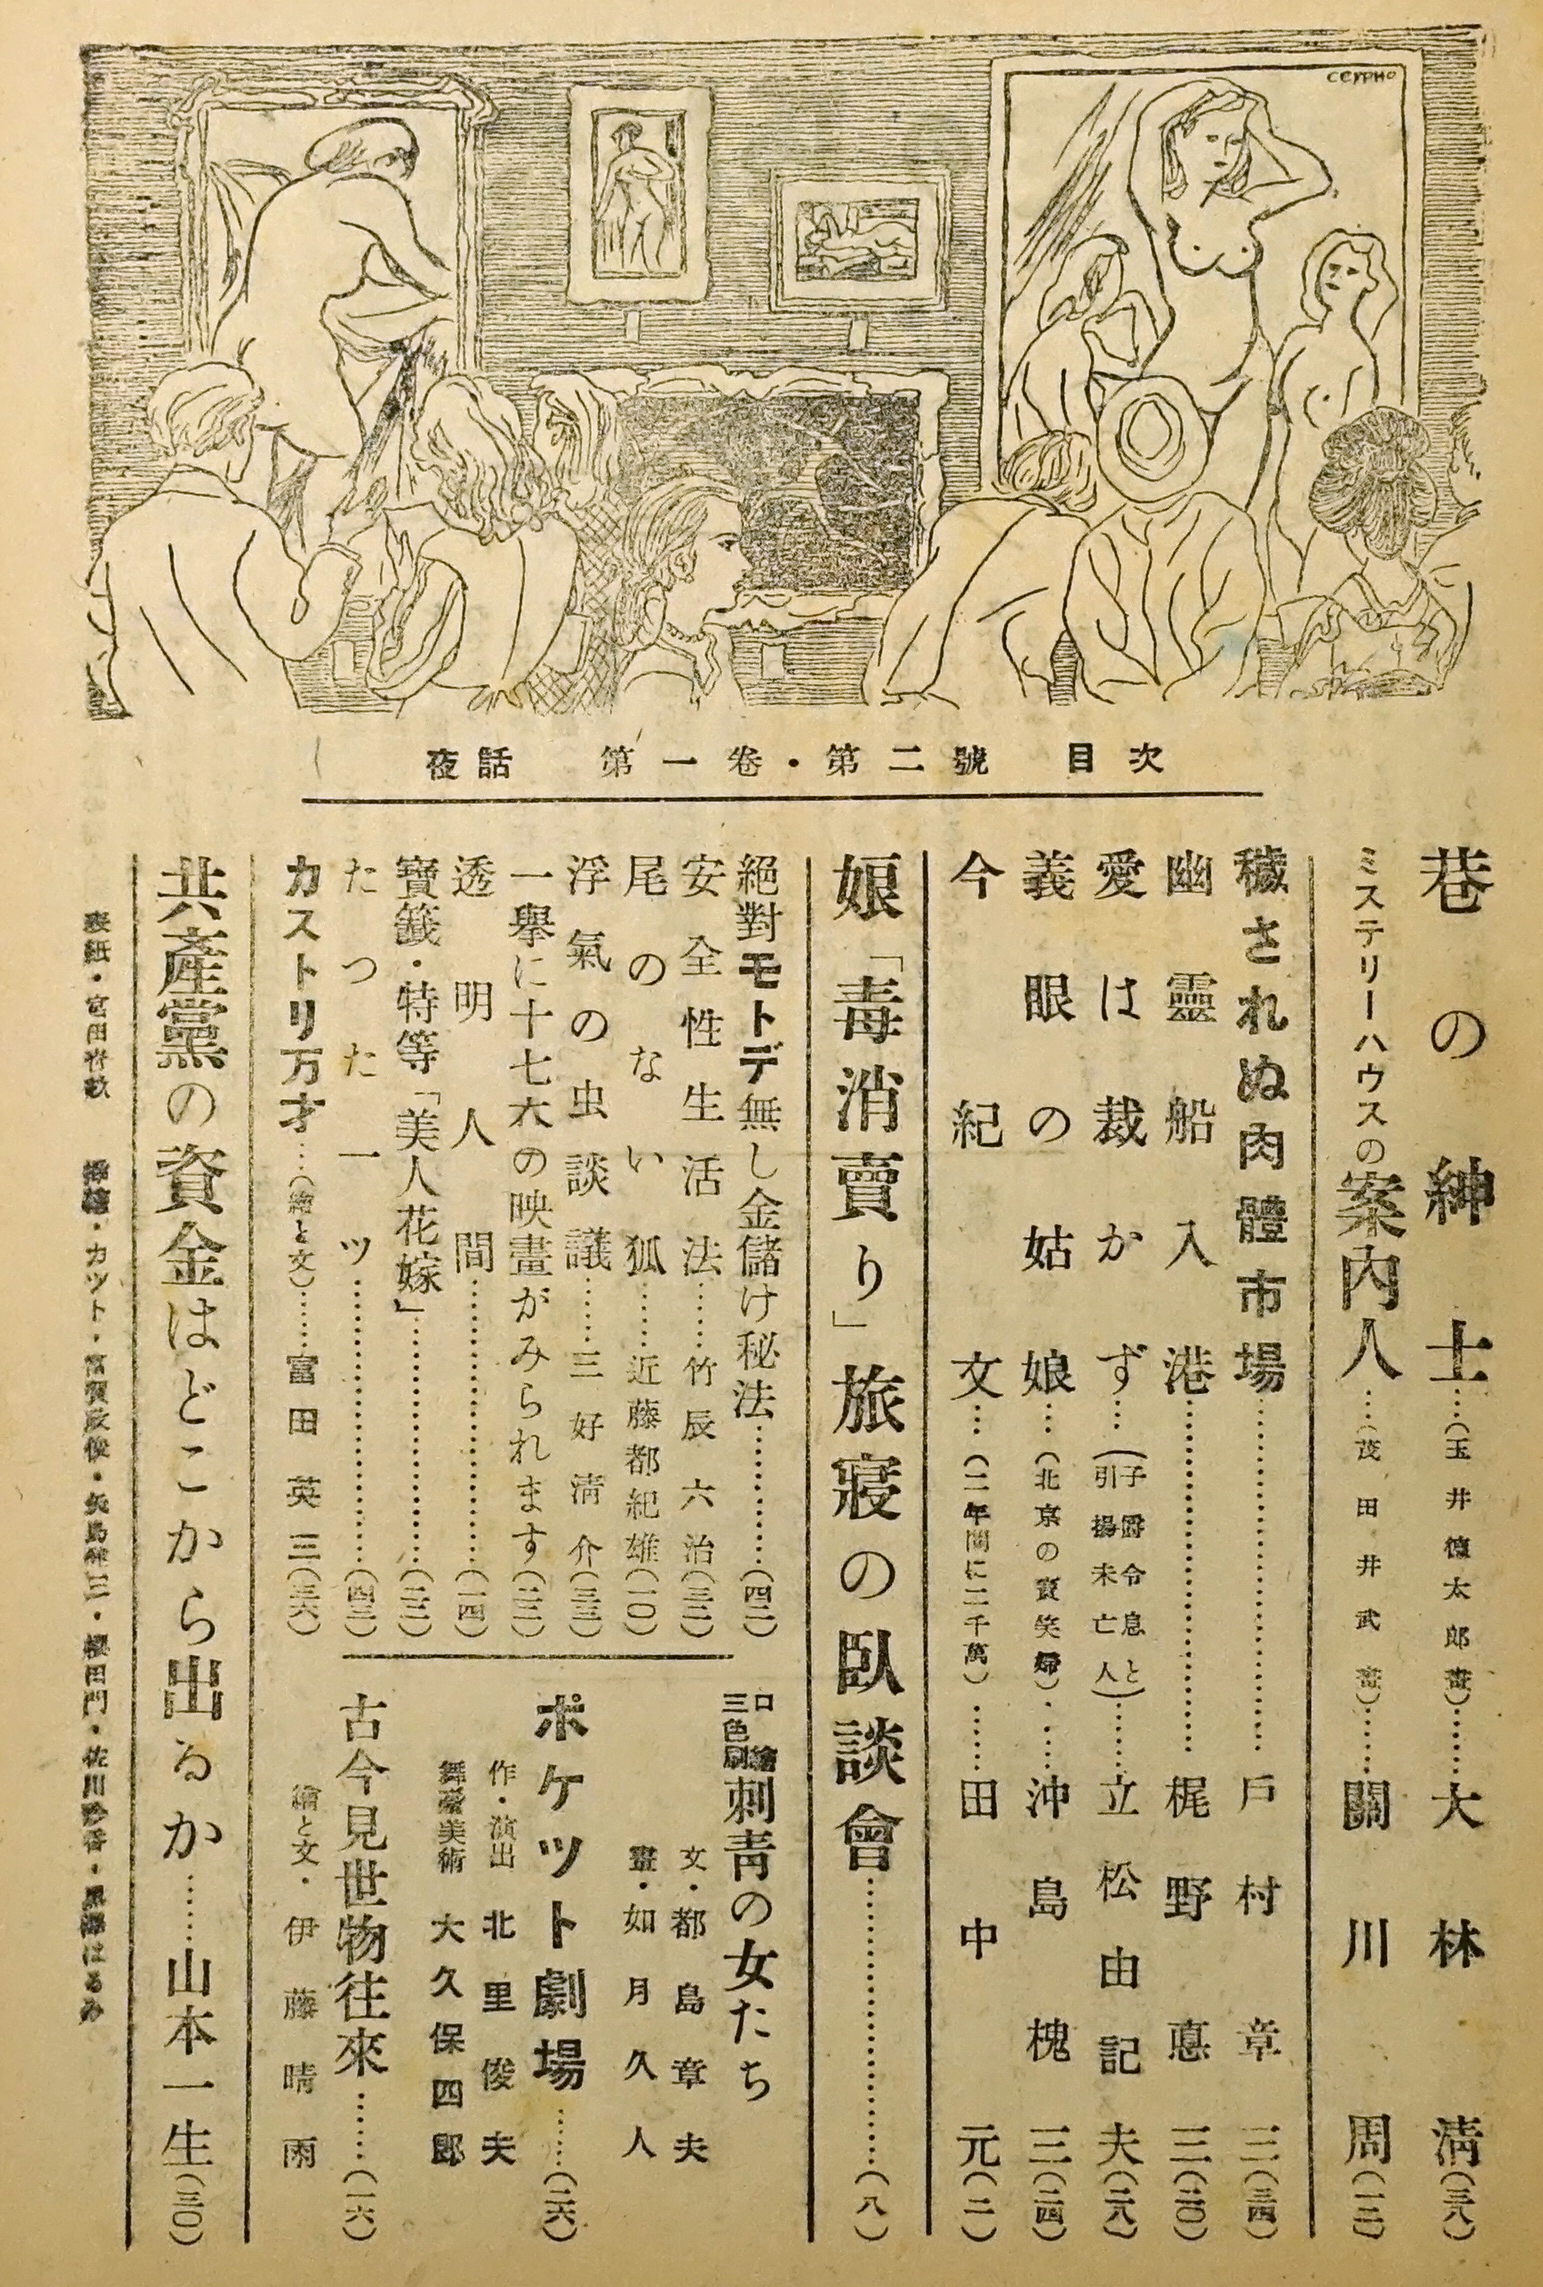 CEYPHO
夜話　第一卷・第二號　目次
巷の紳士…(玉井德太郎畫)……大林淸(三八)
ミステリーハウスの案内人…(茂田井武畫)……關川周(一二)
穢されぬ肉體市場……戶村章三(三四)
幽靈船入港……梶野悳三(二〇)
愛は裁かず…(子爵令息と引揚未亡人)……立松由記夫(二八)
義眼の姑娘…(北京の賣笑婦)……沖島槐三(二四)
今紀文…(二年間に二千萬)……田中元(二)
娘「毒消賣り」旅寢の臥談會……(八)
絕對モトデ無し金儲け秘法……(四二)
安全性生活法……竹辰六治(三二)
尾のない狐……近藤都紀雄(一〇)
浮氣の虫談議……三好淸介(三三)
一擧に十七六の映畫がみられます(二二)
透明人間……(一四)
寶籤・特等「美人花嫁」……(二二)
たつた一ツ……(四三)
カストリ万才…(繪と文)……富田英三(三六)
口繪三色刷 刺靑の女たち
文・都島章夫
畫・如月久人
ポケツト劇場……(二六)
作・演出 北里俊夫
舞臺美術 大久保四郎
古今見世物往來……(一六)
繪と文・伊藤晴雨
共產黨の資金はどこから出るか……山本一生(三〇)
表紙・宮田
揷繪・カツト・富賀政俊・矢島健三・櫻田門・佐川珍香・黒澤はるみ